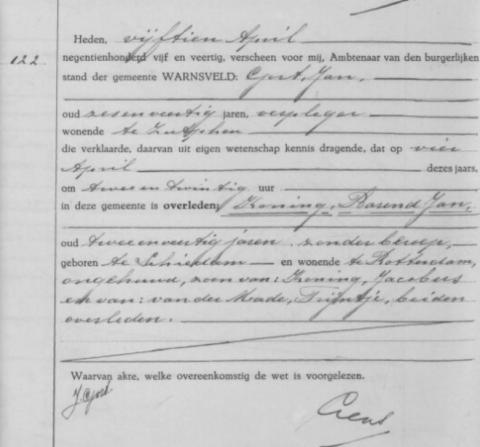 Heden, vijftien April
negentienhonderd vijf en veertig, verscheen voor mij, Ambtenaar van den burgerlijken
122
stand der gemeente WARNSVELD: Jan,
oud zesenveertig jaren, verpleger
wonende te Zutphen
die verklaarde, daarvan uit eigen wetenschap kennis dragende, dat op vier
April dezes jaars,
om twee en twintig uur
in deze gemeente is overleden: Koning, Barend Jan,
oud tweeenveertig jaren, zonder beroep,
geboren te Schiedam en wonende te Rotterdam,
ongehuwd, zoon van: Koning, Jacobus
en van: van der Made, Trijntje, beiden
overleden.
Waarvan akte, welke overeenkomstig de wet is voorgelezen.